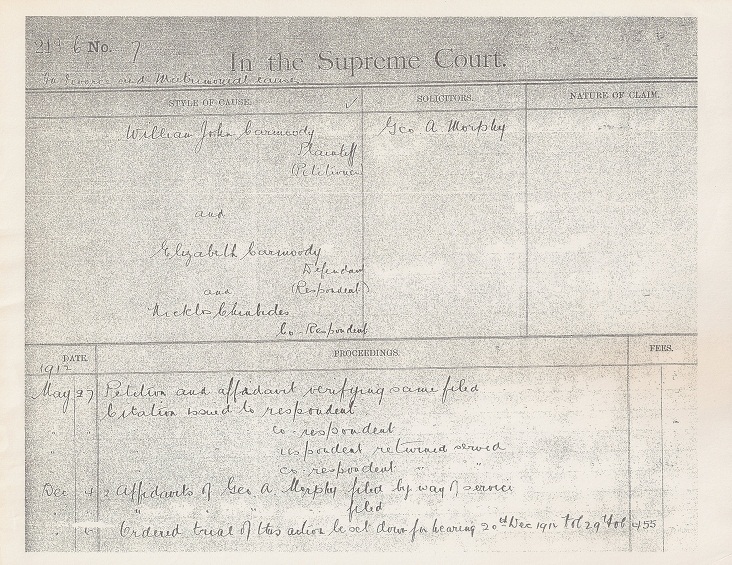 No. 7
In the Supreme Court.
In Divorce and Matrimonial cause
STYLE OF CAUSE. SOLICITORS. NATURE OF CLAIM.
William John Carmoody Geo A Morphy
Plaintiff
(Petitioner)
and
Elizabeth Carmoody
Defendant
and (Respondent)
Co-Respondent
DATE. PROCEEDINGS. FEES.
1912
May 27 Petition and affidavit verifying same filed
Citation issued to respondent
" " co-respondent
" " respondent returned served
" " co respondent " "
Dec 4 2 Affidavits of Geo. A. Morphy filed by way of service
" " " " filed
" " Ordered trial of this action be set down for hearing 20th Dec 1912 fol 29 455